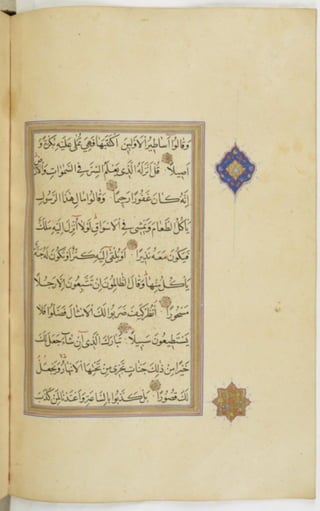 وَقَالُوا أَسَاطِيرُ الْأَوَّلِينَ اكْتَتَبَهَا فَهِيَ تُمْلَىٰ عَلَيْهِ بُكْرَةً وَ
أَصِيلًا قُلْ أَنْزَلَهُ الَّذِي يَعْلَمُ السِّرَّ فِي السَّمَوَاتِ وَالْأَرْضِ
إِنَّهُ كَانَ غَفُورًا رَحِيمًا وَقَالُوا مَالِ هَذَا الرَّسُولِ
يَأْكُلُ الطَّعَامَ وَيَمْشِي فِي الْأَسْوَاقِ لَوْلَا أُنْزِلَ إِلَيْهِ مَلَكٌ
فَيَكُونَ مَعَهُ نَذِيرًا أَوْ يُلْقَىٰ إِلَيْهِ كَنْزٌ أَوْ تَكُونُ لَهُ جَنَّةٌ
يَأْكُلُ مِنْهَا وَقَالَ الظَّالِمُونَ إِنْ تَتَّبِعُونَ إِلَّا رَجُلًا
مَسْحُورًا انْظُرْ كَيْفَ ضَرَبُوا لَكَ الْأَمْثَالَ فَضَلُّوا فَلَا
يَسْتَطِيعُونَ سَبِيلًا تَبَارَكَ الَّذِي إِنْ شَاءَ جَعَلَ لَكَ
خَيْرًا مِنْ ذَلِكَ جَنَّاتٍ تَجْرِي مِنْ تَحْتِهَا الْأَنْهَارُ وَيَجْعَلْ
لَكَ قُصُورًا بَلْ كَذَّبُوا بِالسَّاعَةِ وَأَعْتَدْنَا لِمَنْ كَذَّبَ